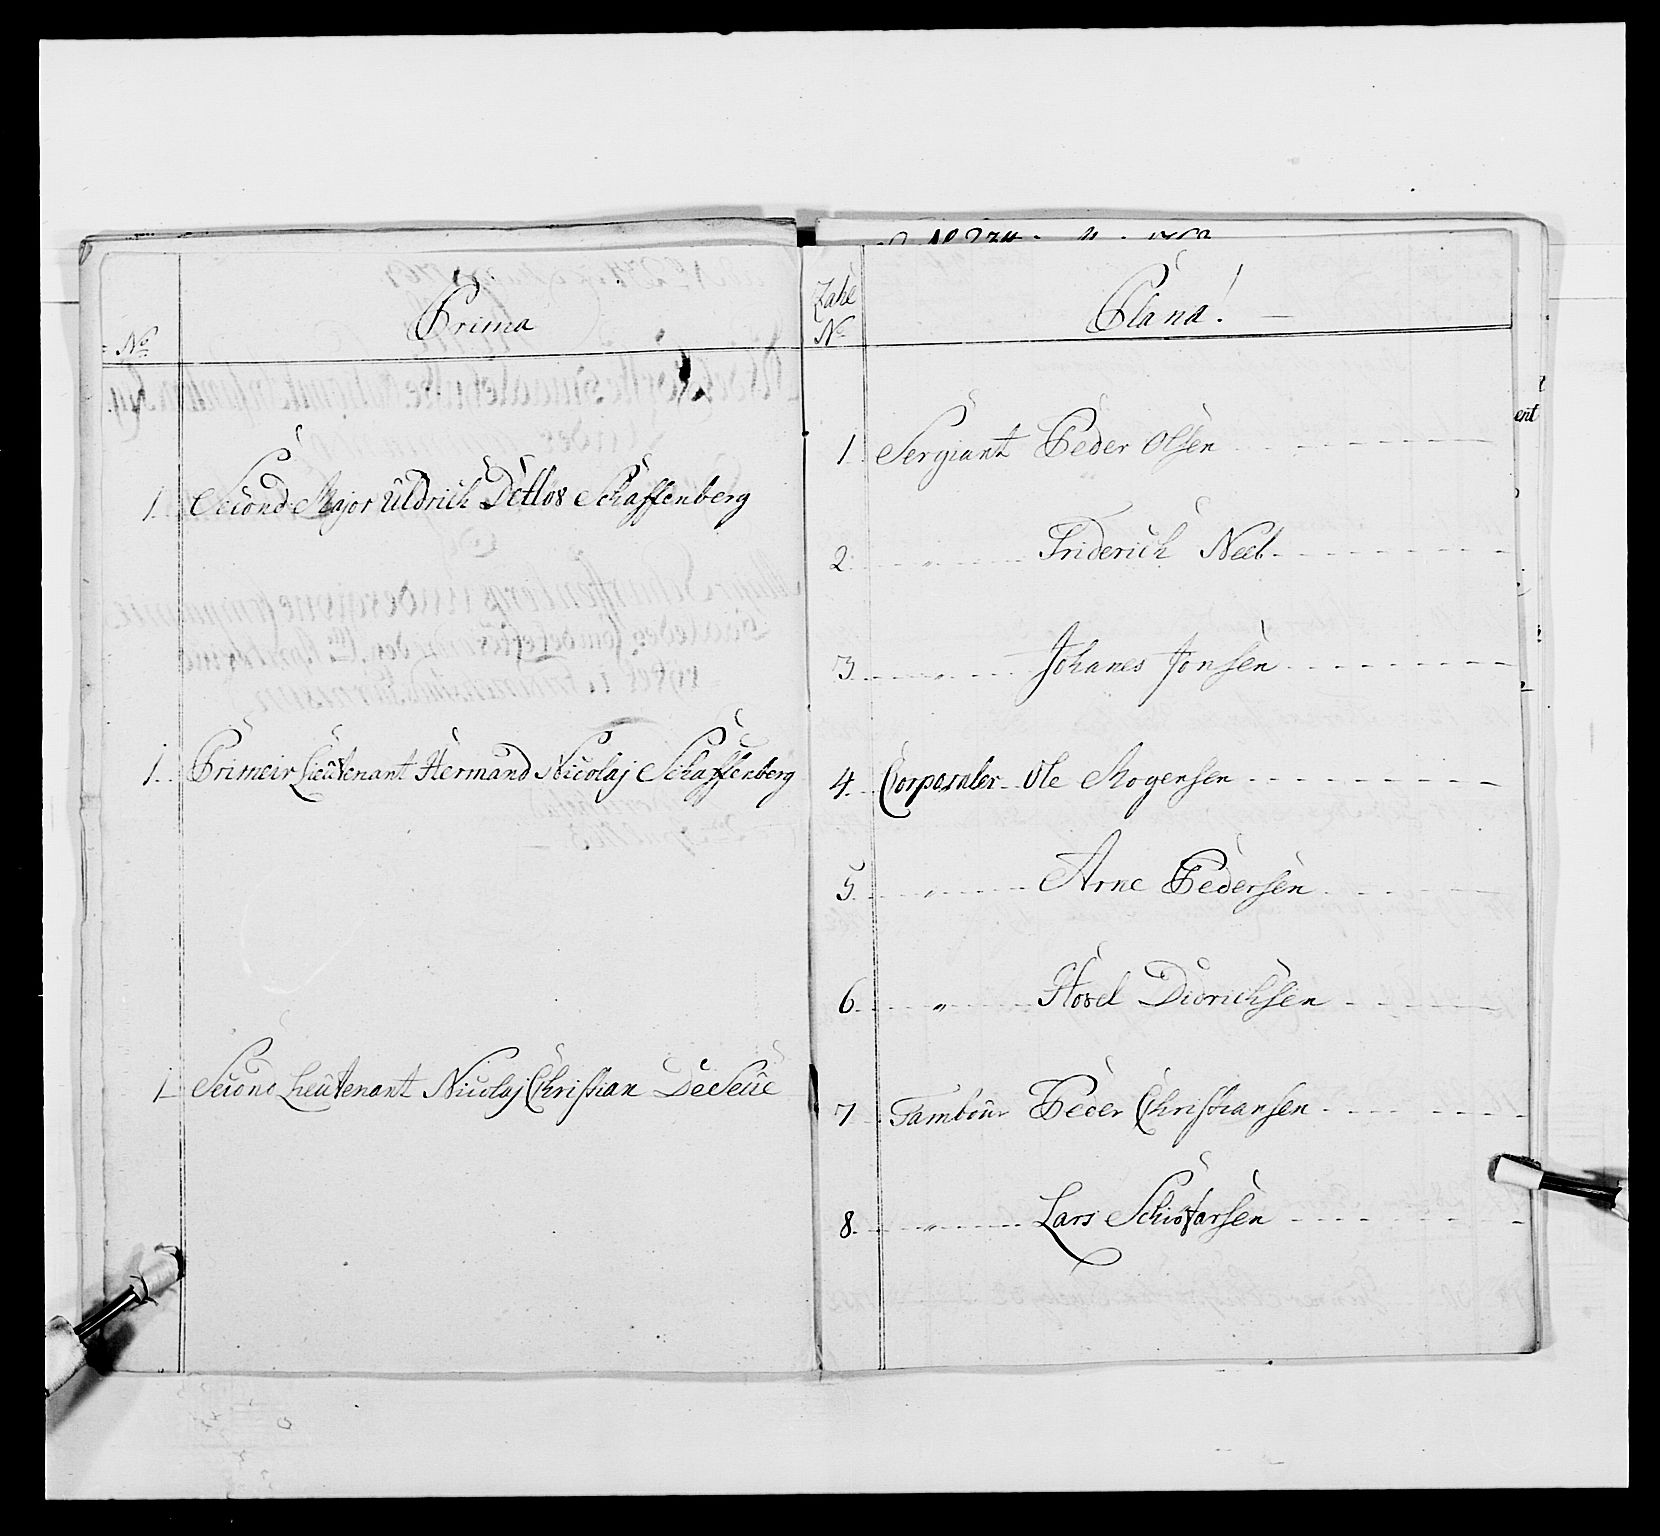 No
Prima
1. Second Major Uldrich Detlos Schaffenberg
1. Primeir Lieutenant Hermand Nicolaj Schaffenberg
1 Second Lieutenant Nicolaj Christian DeSeüe
Zahl No
Plana!
1. Sergiant Peder Olsen
2. " Friderich Neeb
3. " Johanes Jonsen
4. Corporaler Ole Mogensen
5. " Arne Pedersen
6. " Didrichsen
7. Tambour Peder Christiansen
8. " Lars